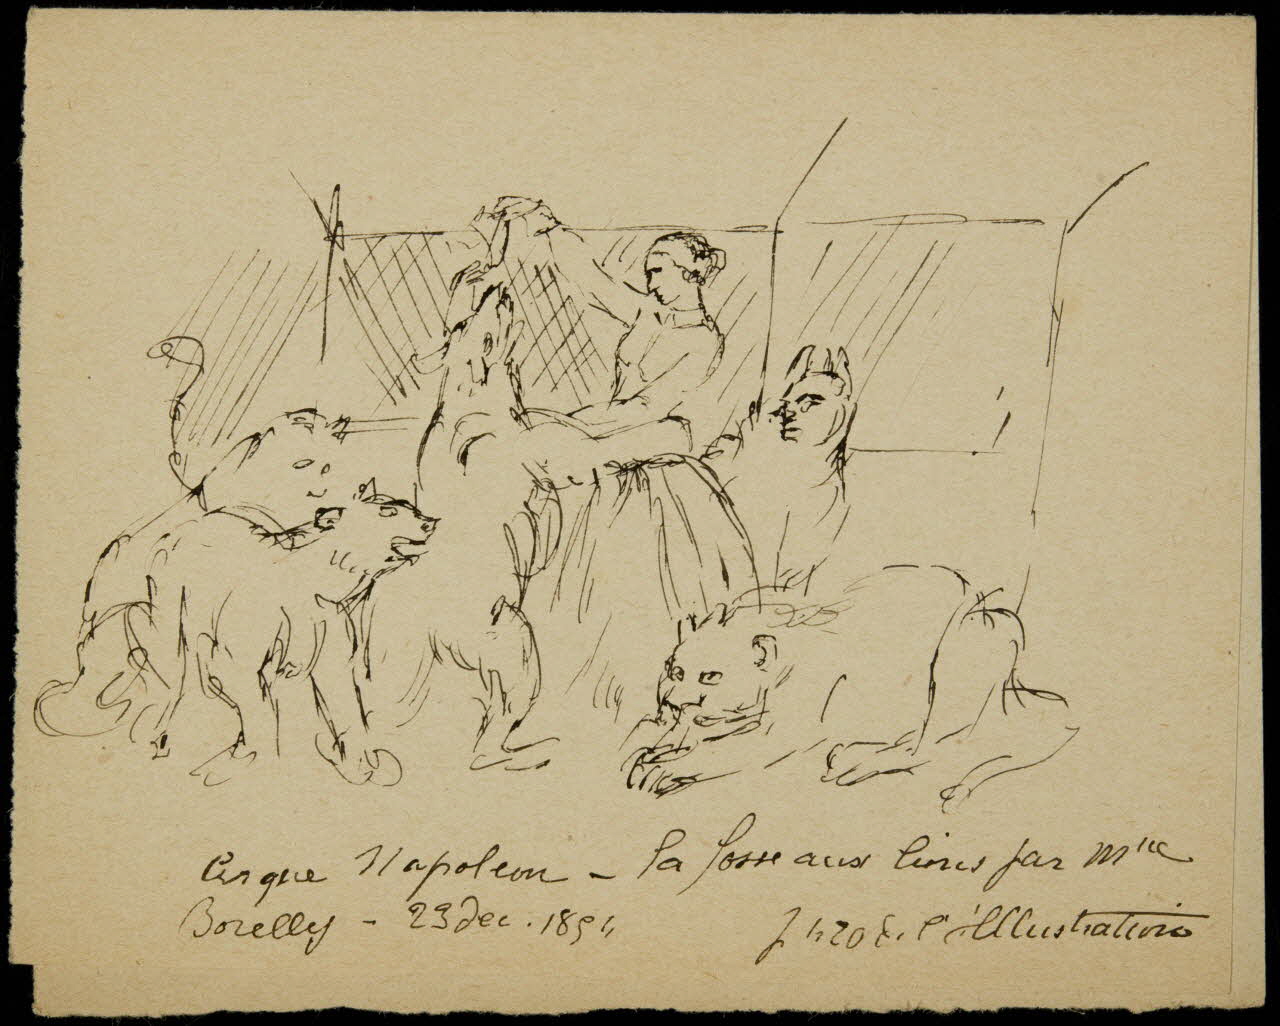 Cirque Napoleon - la fosse aux lions par Mme
Borelly - 23 dec. 1854
de l'illustration